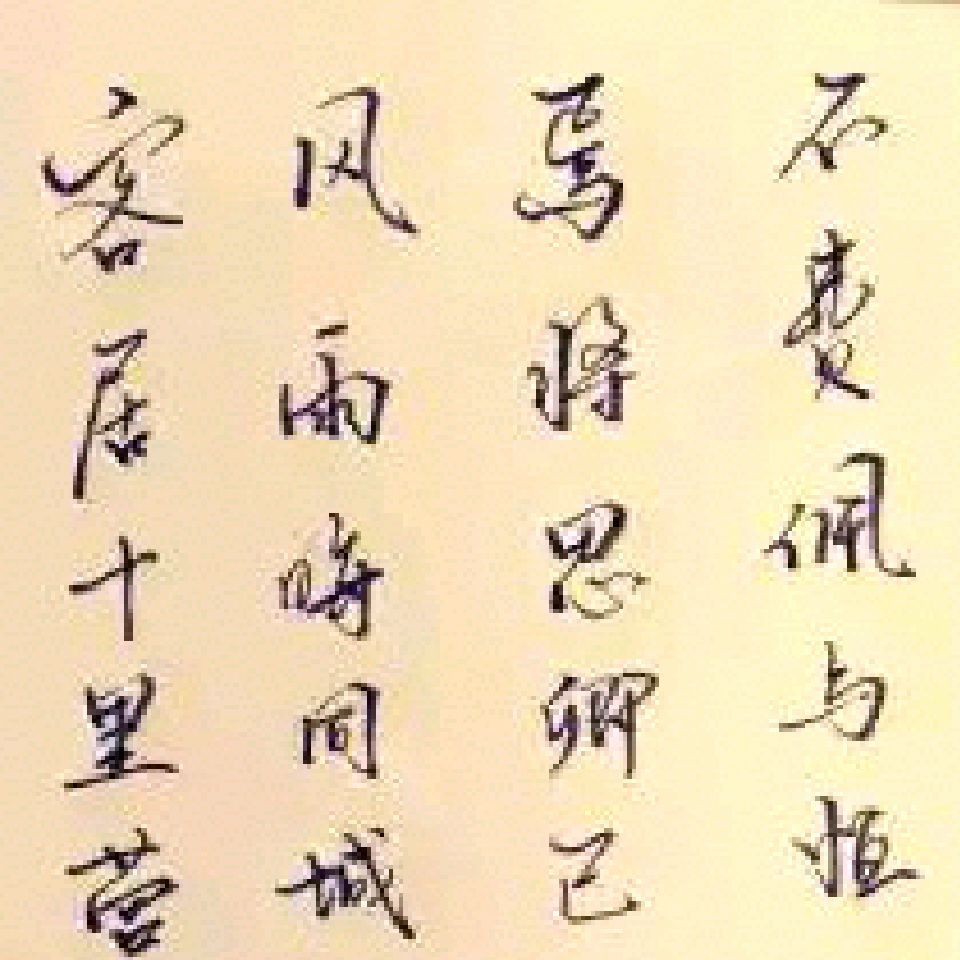 不费佩与恒
焉将思卿己
风雨時同城
客居十里营